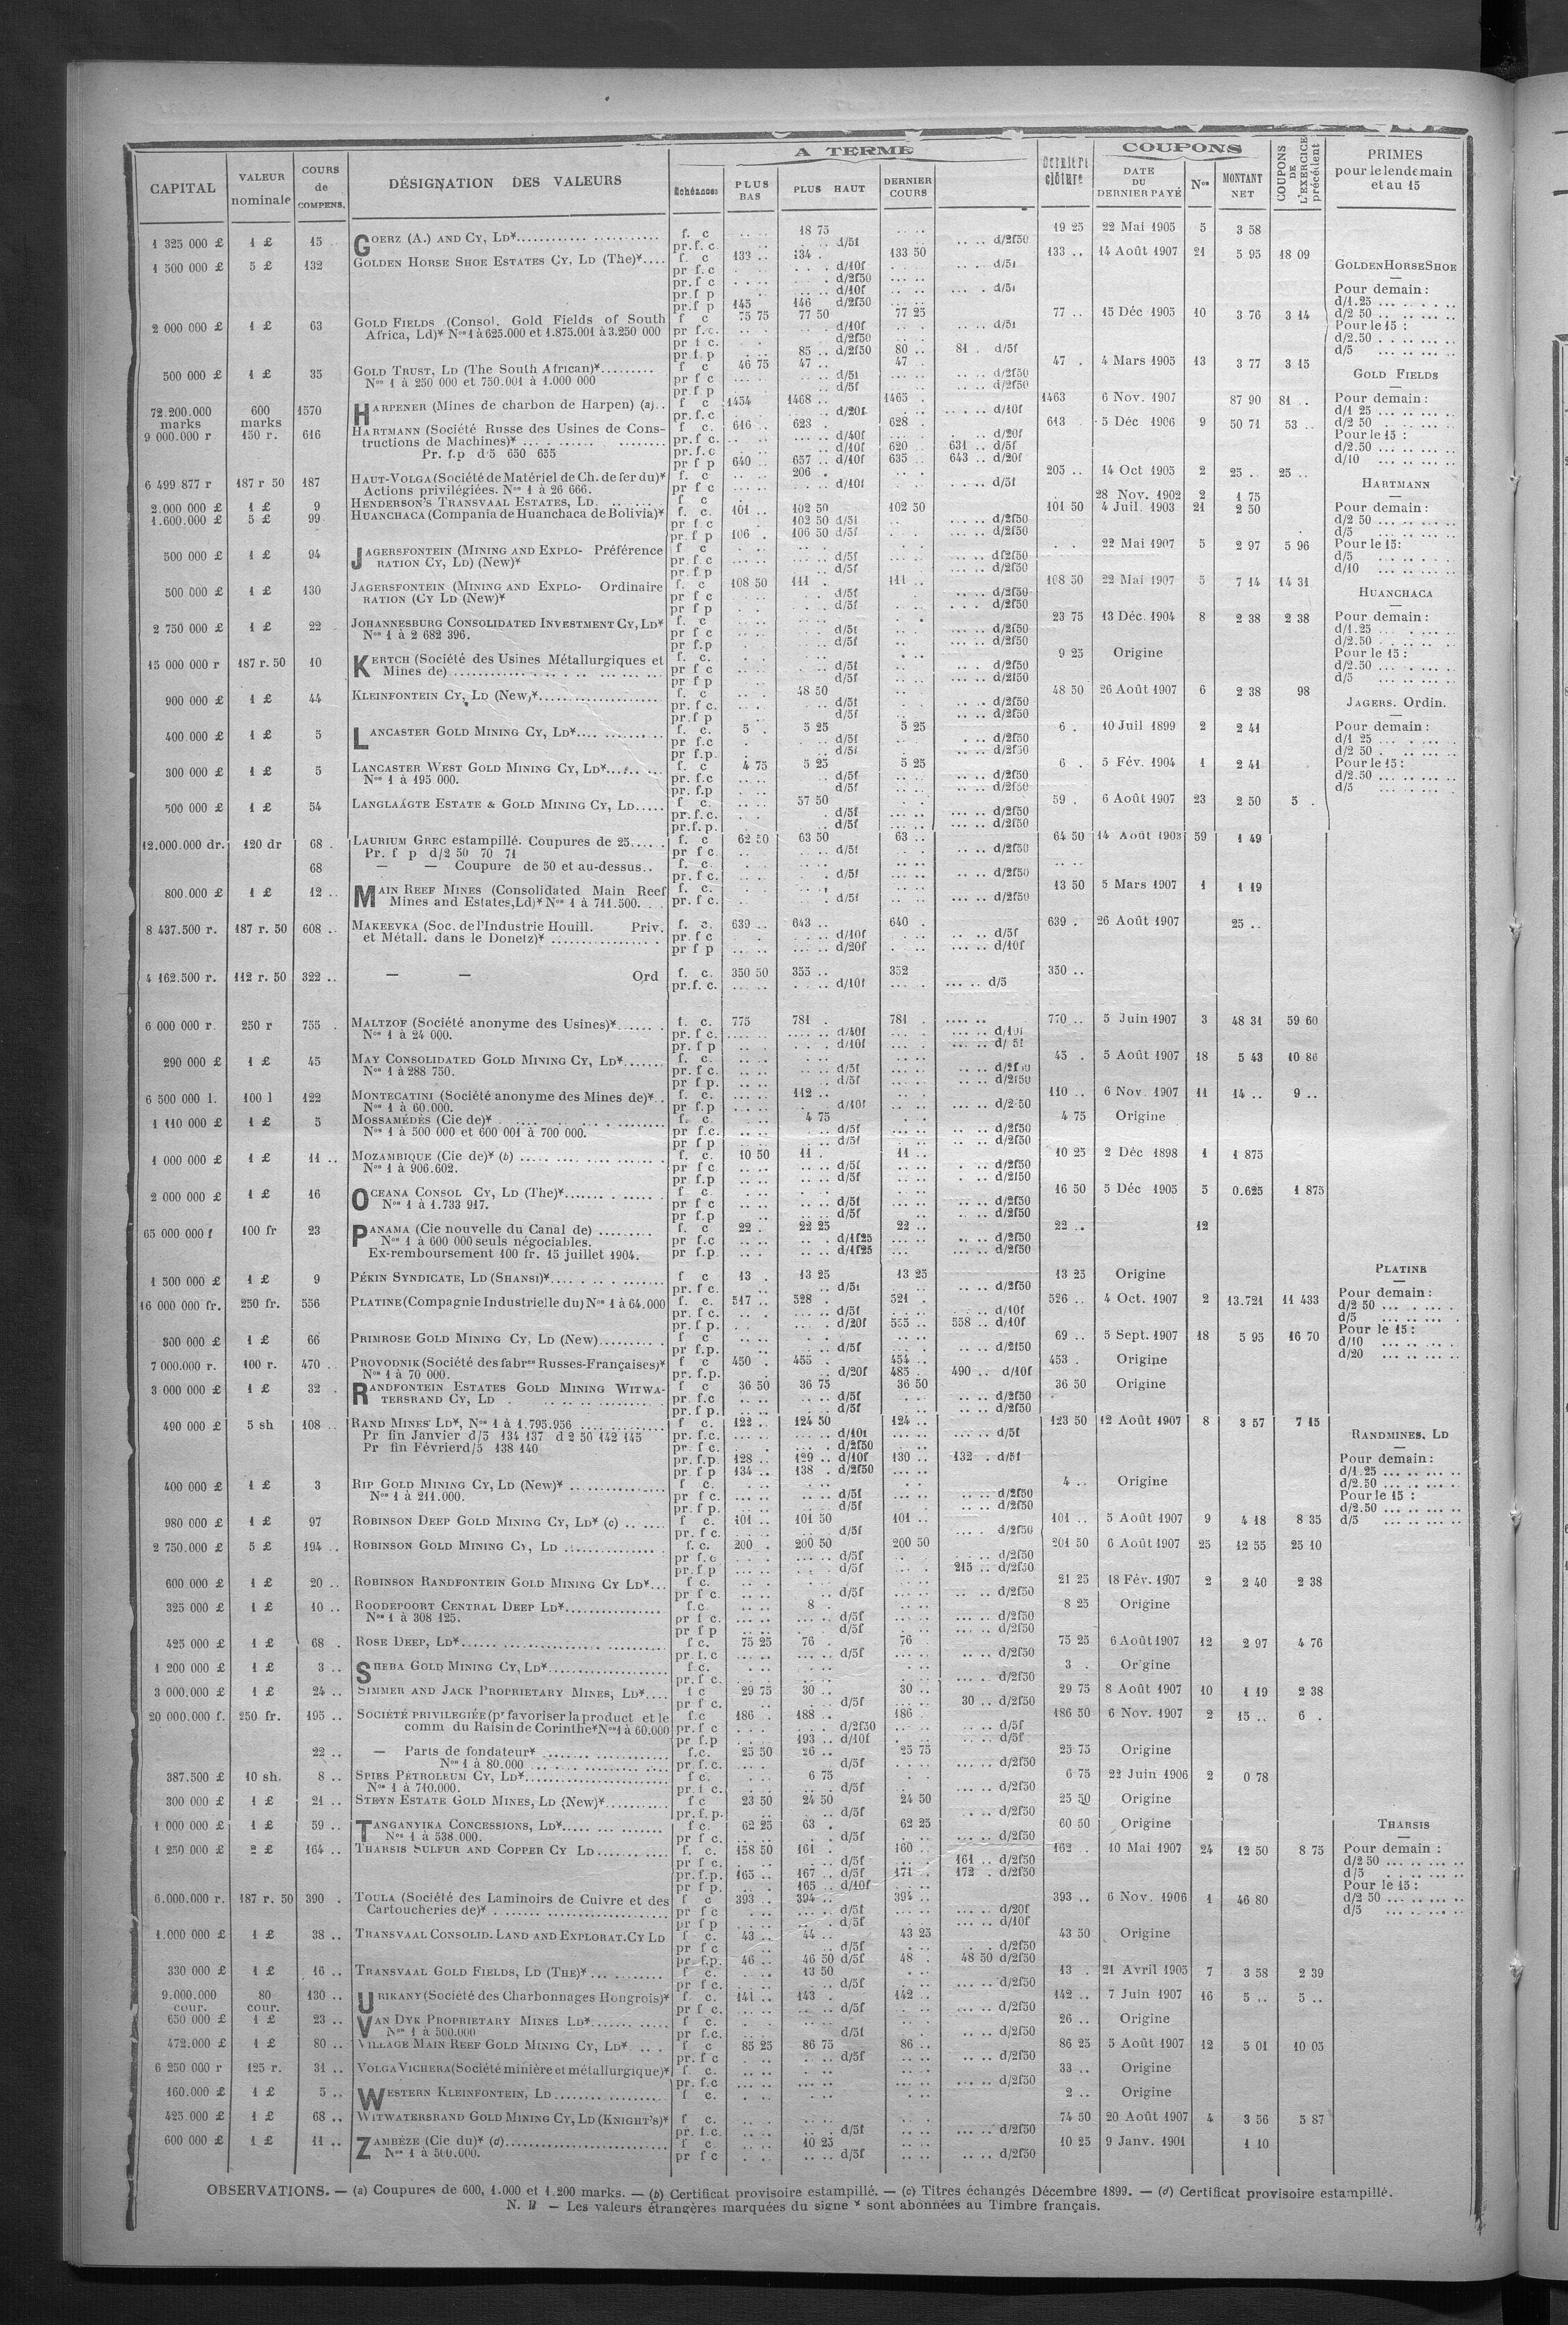 CAPITAL VALEUR nominale COURS de COMPENS. DÉSIGNATION DES VALEURS A TERME Échéances PLUS BAS PLUS HAUT DERNIER COURS DERNIÈRE clôture COUPONS DATE DU DERNIER PAYÉ Nos MONTANT NET COUPONS DE L'EXERCICE précédent PRIMES pour le lendemain et au 15
1 325 000 £ 1 £ 15 GOERZ (A.) AND CY, LD* f. c 18 75 19 25 22 Mai 1905 5 3 58
pr. f. c. d/5f d/2f50
1 500 000 £ 5 £ 132 GOLDEN HORSE SHOE ESTATES CY, LD (The)* f. c 133 134 133 50 133 14 Août 1907 21 5 95 18 09
pr f. c d/10f d/5f
pr. f c d/2f50
pr. f p d/10f d/5f
pr. f p 145 146 d/2f50
2 000 000 £ 1 £ 63 GOLD FIELDS (Consol. Gold Fields of South f c 75 75 77 50 77 25 77 15 Déc 1905 10 3 76 3 14
Africa, Ld)* Nos 1 à 625.000 et 1.875.001 à 3.250 000 pr f. c. d/10f d/5f
pr f c. d/2f50
pr f. p 85 d/2f50 80 81 d/5f
500 000 £ 1 £ 35 GOLD TRUST, LD (The South African)* f c 46 75 47 47 47 4 Mars 1905 13 3 77 3 15
Nos 1 à 250 000 et 750.001 à 1.000 000 pr f c d/5f d/2f50
pr. f p d/5f d/2f50
72.200.000 marks 600 marks 1570 HARPENER (Mines de charbon de Harpen) (a) f c 1454 1468 1465 1463 6 Nov. 1907 87 90 81
pr. f. c d/20f d/10f
9 000.000 r 150 r. 616 HARTMANN (Société Russe des Usines de Cons- f c. 616 623 628 613 5 Déc 1906 9 50 71 53
tructions de Machines)* pr. f c. d/40f d/20f
Pr. f.p d/5 650 655 pr. f. c d/10f 620 631 d/5f
pr f p 640 657 d/10f 635 643 d/20f
6 499 877 r 187 r 50 187 HAUT-VOLGA (Société de Matériel de Ch. de fer du)* f. c 206 205 14 Oct 1905 2 25 25
Actions privilégiées. Nos 1 à 26 666. pr f c d/10f d/5f
2.000 000 £ 1 £ 9 HENDERSON'S TRANSVAAL ESTATES, LD f c 28 Nov. 1902 2 1 75
1.600.000 £ 5 £ 99 HUANCHACA (Compania de Huanchaca de Bolivia)* f. c. 101 102 50 102 50 101 50 4 Juil. 1903 21 2 50
pr f. c 102 50 d/5f d/2f50
pr. f p 106 106 50 d/5f d/2f50
500 000 £ 1 £ 94 JAGERSFONTEIN (MINING AND EXPLO- Préférence f c 22 Mai 1907 5 2 97 5 96
RATION CY, LD) (New)* pr. f. c d/5f d/2f50
pr. f. p d/5f d/2f50
500 000 £ 1 £ 130 JAGERSFONTEIN (MINING AND EXPLO- Ordinaire f. c 108 50 111 111 108 50 22 Mai 1907 5 7 14 14 31
RATION (CY LD (New)* pr f c d/5f d/2f50
pr f p d/5f d/2f50
2 750 000 £ 1 £ 22 JOHANNESBURG CONSOLIDATED INVESTMENT CY, LD* f. c 23 75 13 Déc. 1904 8 2 38 2 38
Nos 1 à 2 682 396. pr f c d/5f d/2f50
pr f.p d/5f d/2f50
15 000 000 r 187 r. 50 10 KERTCH (Société des Usines Métallurgiques et f. c. 9 25 Origine
Mines de) pr f c d/5f d/2f50
pr f p d/5f d/2f50
900 000 £ 1 £ 44 KLEINFONTEIN CY, LD (New)* f. c 48 50 48 50 26 Août 1907 6 2 38 98
pr. f c. d/5f d/2f50
pr. f p d/5f d/2f50
400.000 £ 1 £ 5 LANCASTER GOLD MINING CY, LD* f. c. 5 5 25 5 25 6 10 Juil 1899 2 2 41
pr f.c d/5f d/2f50
pr f.p. d/5f d/2f50
300 000 £ 1 £ 5 LANCASTER WEST GOLD MINING CY, LD* f. c 4 75 5 25 5 25 6 5 Fév. 1904 1 2 41
Nos 1 à 195 000. pr. f.c d/5f d/2f50
pr. f.p d/5f d/2f50
500 000 £ 1 £ 54 LANGLAAGTE ESTATE & GOLD MINING CY, LD f c. 57 50 59 6 Août 1907 23 2 50 5
pr. f. c. d/5f d/2f50
pr. f. p. d/5f d/2f50
12.000.000 dr. 120 dr 68 LAURIUM GREC estampillé. Coupures de 25 f. c 62 50 63 50 63 64 50 14 Août 1903 59 1 49
Pr. f p d/2 50 70 71 pr f c d/5f d/2f50
68 — — Coupure de 50 et au-dessus f. c
pr. f c. d/5f d/2f50
800.000 £ 1 £ 12 MAIN REEF MINES (Consolidated Main Reef f. c. 13 50 5 Mars 1907 1 1 19
Mines and Estates, Ld)* Nos 1 à 711.500. pr. f c. d/5f d/2f50
8 437.500 r. 187 r. 50 608 MAKEEVKA (Soc. de l'Industrie Houill. Priv. f. c. 639 643 640 639 26 Août 1907 25
et Métall. dans le Donetz)* pr. f c d/10f d/5f
pr f p d/20f d/10f
4 162.500 r. 112 r. 50 322 — — Ord f. c. 350 50 355 352 350
pr. f. c. d/10f d/5
6 000 000 r. 250 r 755 MALTZOF (Société anonyme des Usines)* f. c. 775 781 781 770 5 Juin 1907 3 48 31 59 60
Nos 1 à 24 000. pr. f c. d/40f d/10f
pr. f p d/10f d/ 5f
290 000 £ 1 £ 45 MAY CONSOLIDATED GOLD MINING CY, LD* f. c. 45 5 Août 1907 18 5 43 10 86
Nos 1 à 288 750. pr. f c. d/5f d/2f50
pr f p. d/5f d/2f50
6 500 000 l. 100 l 122 MONTECATINI (Société anonyme des Mines de)* f. c. 112 110 6 Nov. 1907 11 14 9
Nos 1 à 60.000. pr f.p d/10f d/2 50
1 110 000 £ 1 £ 5 MOSSAMÉDÈS (Cie de)* f. c 4 75 4 75 Origine
Nos 1 à 500 000 et 600 001 à 700 000. pr f.c. d/5f d/2f50
pr f p d/5f d/2f50
1 000 000 £ 1 £ 11 MOZAMBIQUE (Cie de)* (b) f. c. 10 50 11 11 10 25 2 Déc 1898 1 1 875
Nos 1 à 906.602. pr f c d/5f d/2f50
pr f.p d/5f d/2f50
2 000 000 £ 1 £ 16 OCEANA CONSOL CY, LD (The)* f c 16 50 5 Déc 1905 5 0.625 1 875
Nos 1 à 1.733 917. pr f c d/5f d/2f50
pr f.p d/5f d/2f50
65 000 000 f 100 fr 23 PANAMA (Cie nouvelle du Canal de) f. c 22 22 25 22 22 12
Nos 1 à 600 000 seuls négociables. pr f.c d/1f25 d/2f50
Ex-remboursement 100 fr. 15 juillet 1904. pr f.p. d/1f25 d/2f50
1 500 000 £ 1 £ 9 PÉKIN SYNDICATE, LD (SHANSI)* f c 13 13 25 13 25 13 25 Origine
pr. f c. d/5f d/2f50
16 000 000 fr. 250 fr. 556 PLATINE (Compagnie Industrielle du) Nos 1 à 64.000 f. c. 517 528 521 526 4 Oct. 1907 2 13.721 11 433
pr. f c. d/5f d/10f
pr. f p. d/20f 555 558 d/10f
300 000 £ 1 £ 66 PRIMROSE GOLD MINING CY, LD (New) f c 69 5 Sept. 1907 18 5 95 16 70
pr f.p. d/5f d/2f50
7 000.000 r. 100 r. 470 PROVODNIK (Société des fabres Russes-Françaises)* f c 450 455 454 453 Origine
Nos 1 à 70 000. pr. f.p. d/20f 485 490 d/10f
3 000 000 £ 1 £ 32 RANDFONTEIN ESTATES GOLD MINING WITWA- f c 36 50 36 75 36 50 36 50 Origine
TERSRAND CY, LD pr. f.c d/5f d/2f50
pr. f p. d/5f d/2f50
490 000 £ 5 sh 108 RAND MINES LD*, Nos 1 à 1.795.956 f c. 122 124 50 124 123 50 12 Août 1907 8 3 57 7 15
Pr fin Janvier d/5 134 137 d 2 50 142 145 pr. f.c. d/10f d/5f
Pr fin Février d/5 138 140 pr. f c. d/2f50
pr. f.p. 128 129 d/10f 130 132 d/5f
pr f p 134 138 d/2f50
400 000 £ 1 £ 3 RIP GOLD MINING CY, LD (New)* f c. 4 Origine
Nos 1 à 211.000. pr f c. d/5f d/2f50
pr. f p. d/5f d/2f50
980 000 £ 1 £ 97 ROBINSON DEEP GOLD MINING CY, LD* (c) f c. 101 101 50 101 101 5 Août 1907 9 4 18 8 35
pr. f c. d/5f d/2f50
2 750.000 £ 5 £ 194 ROBINSON GOLD MINING CY, LD f. c. 200 200 50 200 50 201 50 6 Août 1907 25 12 55 25 10
pr f. c d/5f d/2f50
pr. f.p d/5f 215 d/2f50
600.000 £ 1 £ 20 ROBINSON RANDFONTEIN GOLD MINING CY LD* f c. 21 25 18 Fév. 1907 2 2 40 2 38
pr f c. d/5f d/2f50
325 000 £ 1 £ 10 ROODEPOORT CENTRAL DEEP LD* f.c. 8 8 25 Origine
Nos 1 à 308 125. pr f c. d/5f d/2f50
pr f p d/5f d/2f50
425 000 £ 1 £ 68 ROSE DEEP, LD* f c. 75 25 76 76 75 25 6 Août 1907 12 2 97 4 76
pr. f. c d/5f d/2f50
1 200 000 £ 1 £ 3 SHEBA GOLD MINING CY, LD* f c. 3 Origine
pr. f c. d/2f50
3 000.000 £ 1 £ 24 SIMMER AND JACK PROPRIETARY MINES, LD* f c 29 75 30 30 29 75 8 Août 1907 10 1 19 2 38
pr f c. d/5f 30 d/2f50
20 000.000 f. 250 fr. 195 SOCIÉTÉ PRIVILEGIÉE (pr favoriser la product et le f.c 186 188 186 186 50 6 Nov. 1907 2 15 6
comm du Raisin de Corinthe* Nos 1 à 60.000 pr. f c d/2f50 d/5f
pr f.p 193 d/10f d/5f
22 — Parts de fondateur* f.c. 25 50 26 25 75 25 75 Origine
Nos 1 à 80.000 pr. f.c. d/5f d/2f50
387.500 £ 10 sh. 8 SPIES PÉTROLEUM CY, LD* f c. 6 75 6 75 22 Juin 1906 2 0 78
Nos 1 à 710.000. pr. f c. d/5f d/2f50
300 000 £ 1 £ 21 STEYN ESTATE GOLD MINES, LD (New)* f c 23 50 24 50 24 50 25 50 Origine
pr. f. p. d/5f d/2f50
1 000 000 £ 1 £ 59 TANGANYIKA CONCESSIONS, LD* f c. 62 25 63 62 25 60 50 Origine
Nos 1 à 538.000. pr f c. d/5f d/2f50
1 250 000 £ 2 £ 164 THARSIS SULFUR AND COPPER CY LD f. c. 158 50 161 160 162 10 Mai 1907 24 12 50 8 75
pr f c. d/5f 161 d/2f50
pr. f.p. 165 167 d/5f 171 172 d/2f50
pr f p. 165 d/10f
6.000.000 r. 187 r. 50 390 TOULA (Société des Laminoirs de Cuivre et des f c 393 394 394 393 6 Nov. 1906 1 46 80
Cartoucheries de)* pr f c d/5f d/20f
pr f p d/5f d/10f
1.000 000 £ 1 £ 38 TRANSVAAL CONSOLID. LAND AND EXPLORAT. CY LD f c. 43 44 43 25 43 50 Origine
pr f c d/5f d/2f50
pr f.p. 46 46 50 d/5f 48 48 50 d/2f50
330 000 £ 1 £ 16 TRANSVAAL GOLD FIELDS, LD (THE)* f c. 13 50 13 21 Avril 1905 7 3 58 2 39
pr f c. d/5f d/2f50
9.000.000 cour. 80 cour. 130 URIKANY (Société des Charbonnages Hongrois)* f c. 141 143 142 142 7 Juin 1907 16 5 5
pr f c. d/5f d/2f50
650 000 £ 1 £ 23 VAN DYK PROPRIETARY MINES LD* f c 26 Origine
Nos 1 à 500.000 pr f.c. d/5f d/2f50
472.000 £ 1 £ 80 VILLAGE MAIN REEF GOLD MINING CY, LD* f c 85 25 86 75 86 86 25 5 Août 1907 12 5 01 10 05
pr. f c d/5f d/2f50
6 250 000 r 125 r. 31 VOLGA VICHERA (Société minière et métallurgique)* f. c. 33 Origine
pr. f.c d/2f50
160.000 £ 1 £ 5 WESTERN KLEINFONTEIN, LD f c. 2 Origine
425 000 £ 1 £ 68 WITWATERSRAND GOLD MINING CY, LD (KNIGHT'S)* f c. 74 50 20 Août 1907 4 3 56 5 87
pr. f.c. d/5f d/2f50
600 000 £ 1 £ 11 ZAMBÈZE (Cie du)* (d) f c. 10 25 10 25 9 Janv. 1901 1 10
Nos 1 à 500.000. pr f c d/5f d/2f50
GOLDEN HORSE SHOE
Pour demain :
d/1.25
d/2 50
Pour le 15 :
d/2.50
d/5
GOLD FIELDS
Pour demain :
d/1 25
d/2 50
Pour le 15 :
d/2.50
d/10
HARTMANN
Pour demain :
d/2 50
d/5
Pour le 15 :
d/5
d/10
HUANCHACA
Pour demain :
d/1.25
d/2.50
Pour le 15 :
d/2.50
d/5
JAGERS. Ordin.
Pour demain :
d/1 25
d/2 50
Pour le 15 :
d/2.50
d/5
PLATINE
Pour demain :
d/2 50
d/5
Pour le 15 :
d/10
d/20
RANDMINES, LD
Pour demain :
d/1.25
d/2.50
Pour le 15 :
d/2.50
d/5
THARSIS
Pour demain :
d/2 50
d/5
Pour le 15 :
d/2 50
d/5
OBSERVATIONS. — (a) Coupures de 600, 1.000 et 1.200 marks. — (b) Certificat provisoire estampillé. — (c) Titres échangés Décembre 1899. — (d) Certificat provisoire estampillé.
N. B — Les valeurs étrangères marquées du signe * sont abonnées au Timbre français.